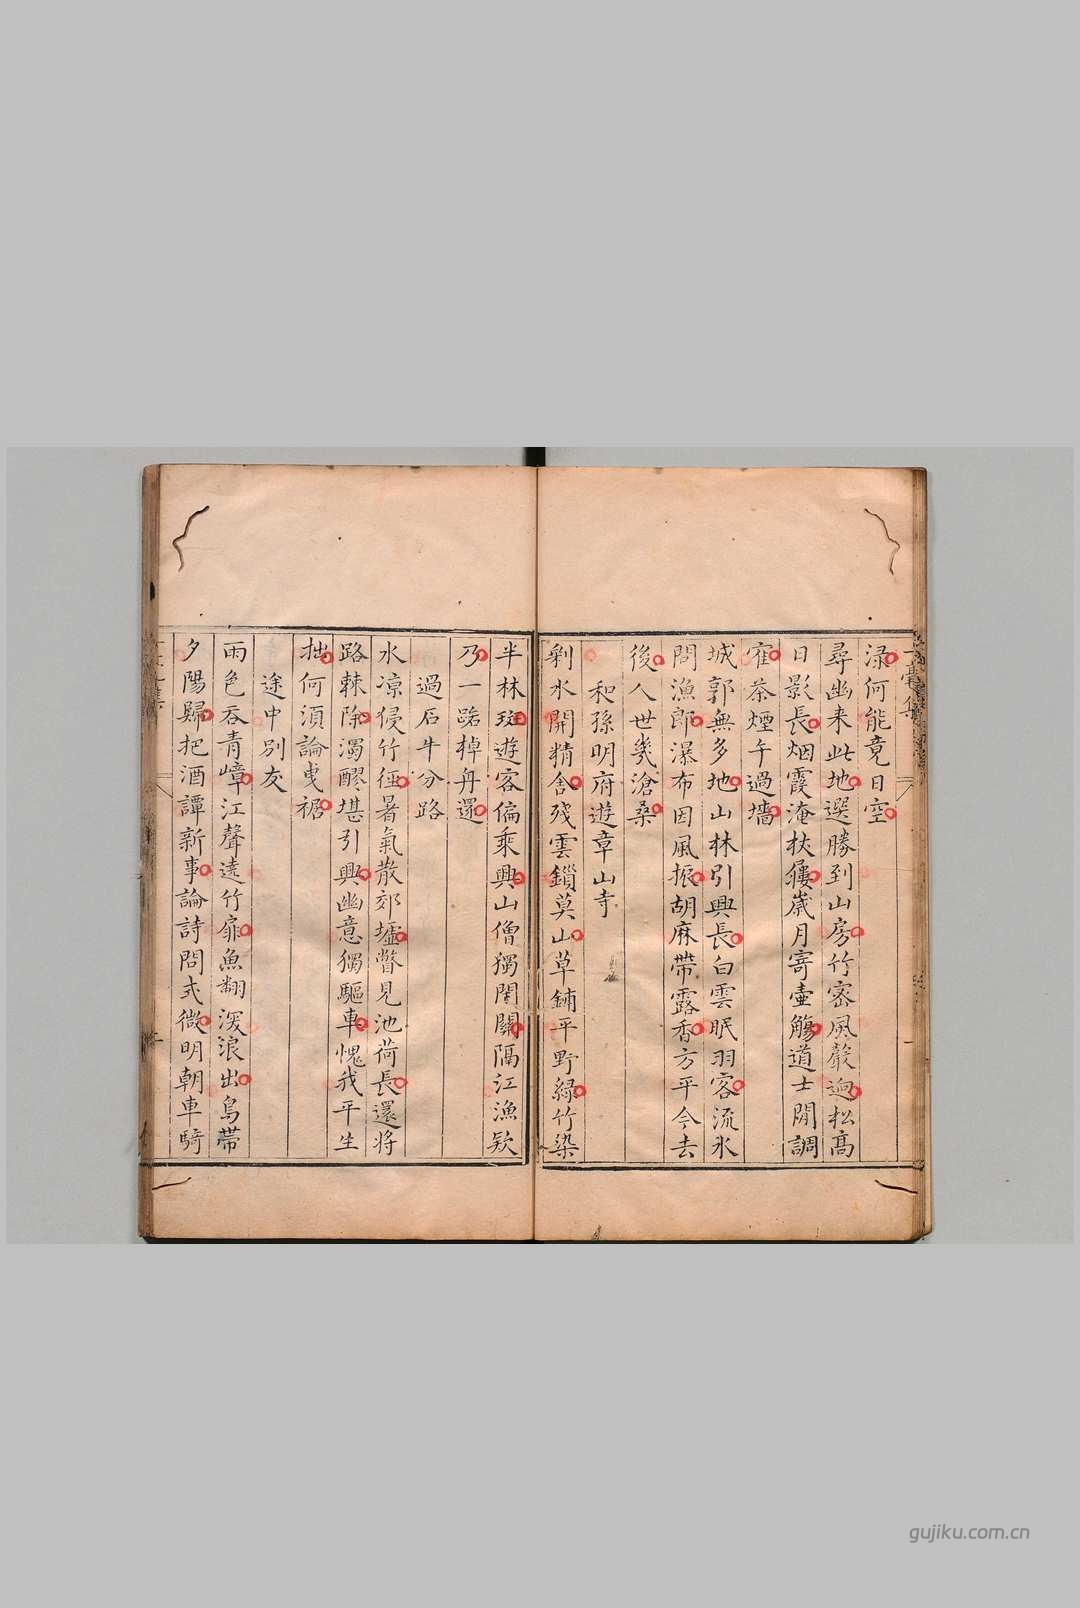 渌何能竟日空
尋幽来此地選勝到山房竹密風嚴逈松高
日影長烟霞淹杖屨歲月寄壷觴道士閒調
隺茶煙午過墻
城郭無多地山林引興長白雲眠羽客流水
問漁郎瀑布因風振胡麻帶露香方平今去
後人世幾滄桑
和孫明府遊章山寺
剰水開精舎残雲鎖莫山草鋪平野緑竹染
半林斑遊客偏乘興山僧獨閉關隔江漁欵
乃一路棹舟還
過石牛分路
水凉侵竹徑暑氣散郊墟瞥見池荷長還将
路棘除濁醪堪引興幽意獨驅車愧我平生
拙何湏論曵裾
途中別友
雨色吞青嶂江聲遶竹扉魚翻浪出鳥帶
夕陽歸把酒譚新事論詩問式微明朝車騎
gujiku.com.cn